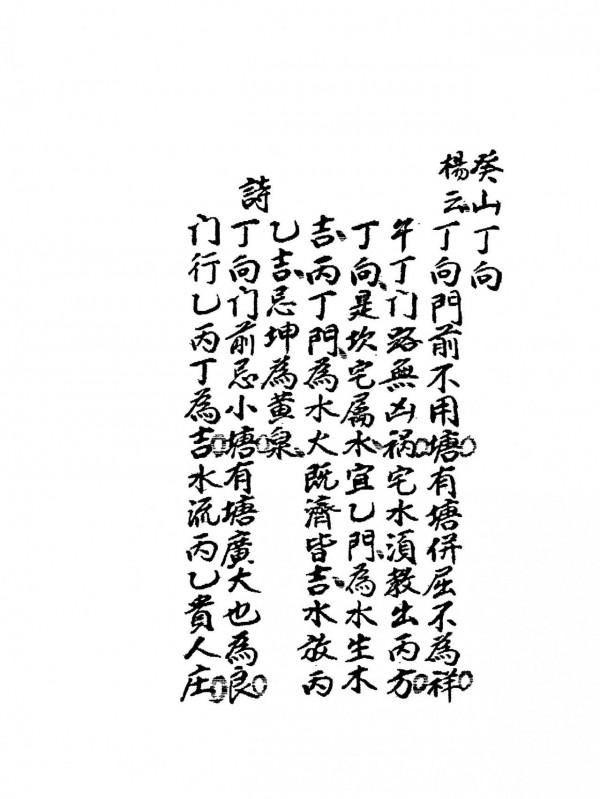 癸山丁向
楊云丁向門前不用塘○有塘併屈不為祥○
午丁门路無凶祸○宅水湏教出丙方○
丁向、是坎宅属水、宜乙門、為水生木
吉、丙丁門、為水火既濟皆吉、水放丙
乙吉、忌坤為黄泉、
詩
丁向门前忌小塘○有塘廣大也為良○
门行乙丙丁為吉○水流丙乙貴人庄○